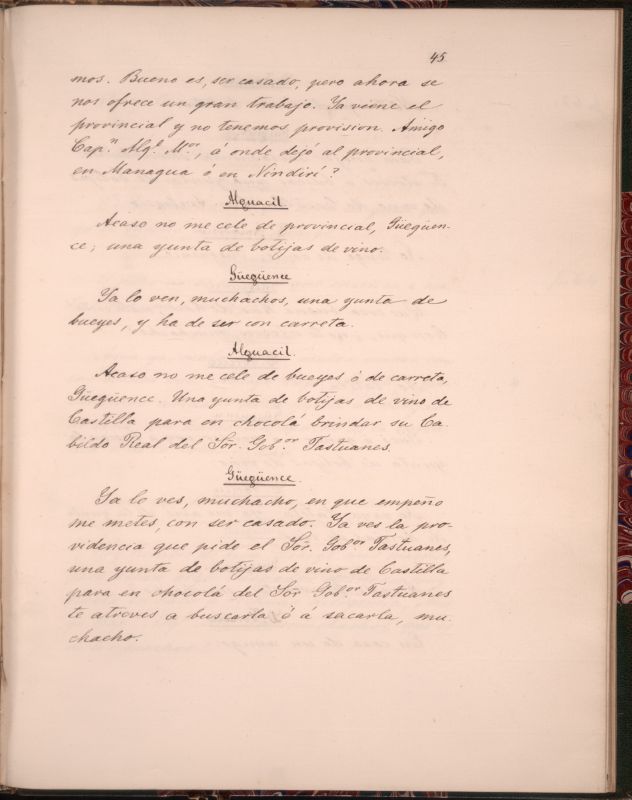 45
mos. Bueno es, ser casado, pero ahora se
nos ofrece un gran trabajo. Ya viene el
provincial y no tenemos provision. Amigo
Cap.n Alg.l M.or, á onde dejó al provincial,
en Managua ó en Nindiri?
Alguacil
Acaso no me cele de provincial, Güegüen-
ce; una yunta de botijas de vino.
Güegüence
Ya lo ven, muchachos, una yunta de
bueyes, y ha de ser con carreta.
Alguacil.
Acaso no me cele de bueyes ó de carreta,
Güegüence. Una yunta de botijas de vino de
Castilla para en chocolá brindar su Ca-
bildo Real del Sór. Gob.or Tastuanes.
Güegüence.
Ya lo ves, muchacho, en que empeño
me metes, con ser casado. Ya ves la pro-
videncia que pide el Sór. Gob.or Tastuanes,
una yunta de botijas de vino de Castilla
para en chocolá del Sór Gob.or Tastuanes
te atreves a buscarla ó á sacarla, mu-
chacho.